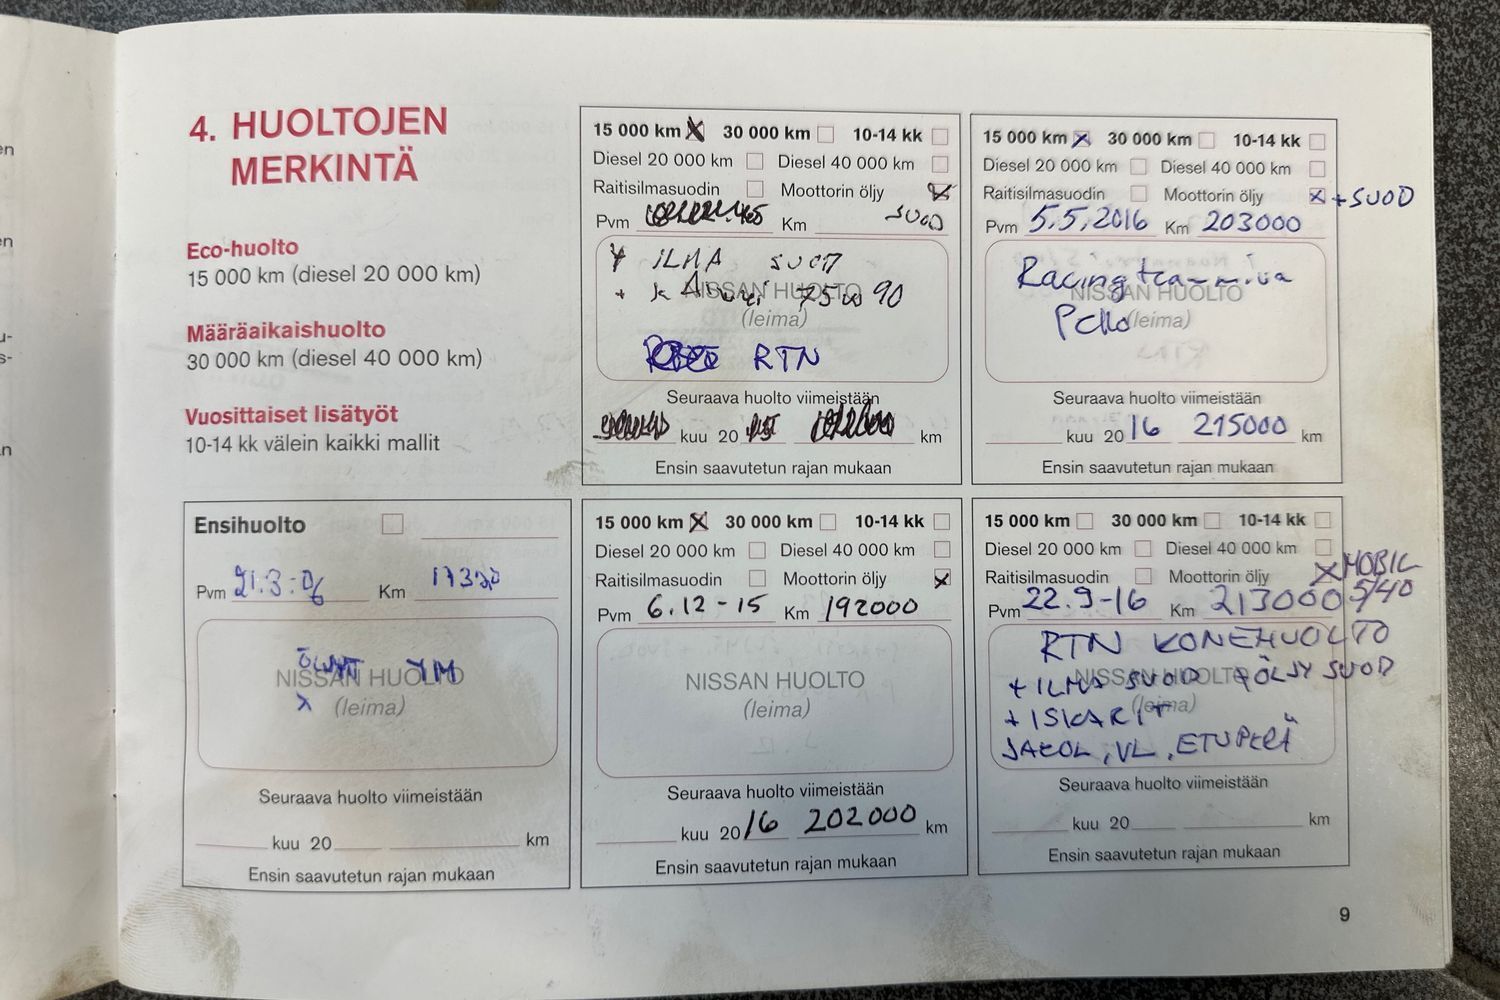 4. HUOLTOJEN
MERKINTÄ
Eco-huolto
15 000 km (diesel 20 000 km)
Määräaikaishuolto
30 000 km (diesel 40 000 km)
Vuosittaiset lisätyöt
10-14 kk välein kaikki mallit
15 000 km 30 000 km 10-14 kk
Diesel 20 000 km Diesel 40 000 km
Raitisilmasuodin Moottorin öljy
Pvm Km SUOD
ILMA SUOD
+ 75W90
NISSAN HUOLTO
(leima)
RTN
Seuraava huolto viimeistään
kuu 20 km
Ensin saavutetun rajan mukaan
15 000 km 30 000 km 10-14 kk
Diesel 20 000 km Diesel 40 000 km
Raitisilmasuodin Moottorin öljy +SUOD
Pvm 5.5.2016 Km 203000
Racing
NISSAN HUOLTO
(leima)
Seuraava huolto viimeistään
kuu 20 16 215000 km
Ensin saavutetun rajan mukaan
Ensihuolto
Pvm 21.3.06 Km
NISSAN HUOLTO
(leima)
Seuraava huolto viimeistään
kuu 20 km
Ensin saavutetun rajan mukaan
15 000 km 30 000 km 10-14 kk
Diesel 20 000 km Diesel 40 000 km
Raitisilmasuodin Moottorin öljy
Pvm 6.12-15 Km 192000
NISSAN HUOLTO
(leima)
Seuraava huolto viimeistään
kuu 20 16 202000 km
Ensin saavutetun rajan mukaan
15 000 km 30 000 km 10-14 kk
Diesel 20 000 km Diesel 40 000 km
Raitisilmasuodin Moottorin öljy MOBIL
Pvm 22.9-16 Km 213000 5/40
RTN KONEHUOLTO
+ILMA SUOD +ÖLJY SUOD
NISSAN HUOLTO
(leima)
+ISKARIT
JAKOL, VL, ETUPERÄ
Seuraava huolto viimeistään
kuu 20 km
Ensin saavutetun rajan mukaan
9